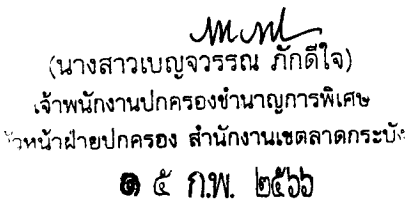 (นางสาวเบญจวรรณ ภักดีใจ)
เจ้าพนักงานปกครองชำนาญการพิเศษ
ัวหน้าฝ่ายปกครอง สำนักงานเขตลาดกระบัง
๑ ๕ ก.พ. ๒๕๖๖